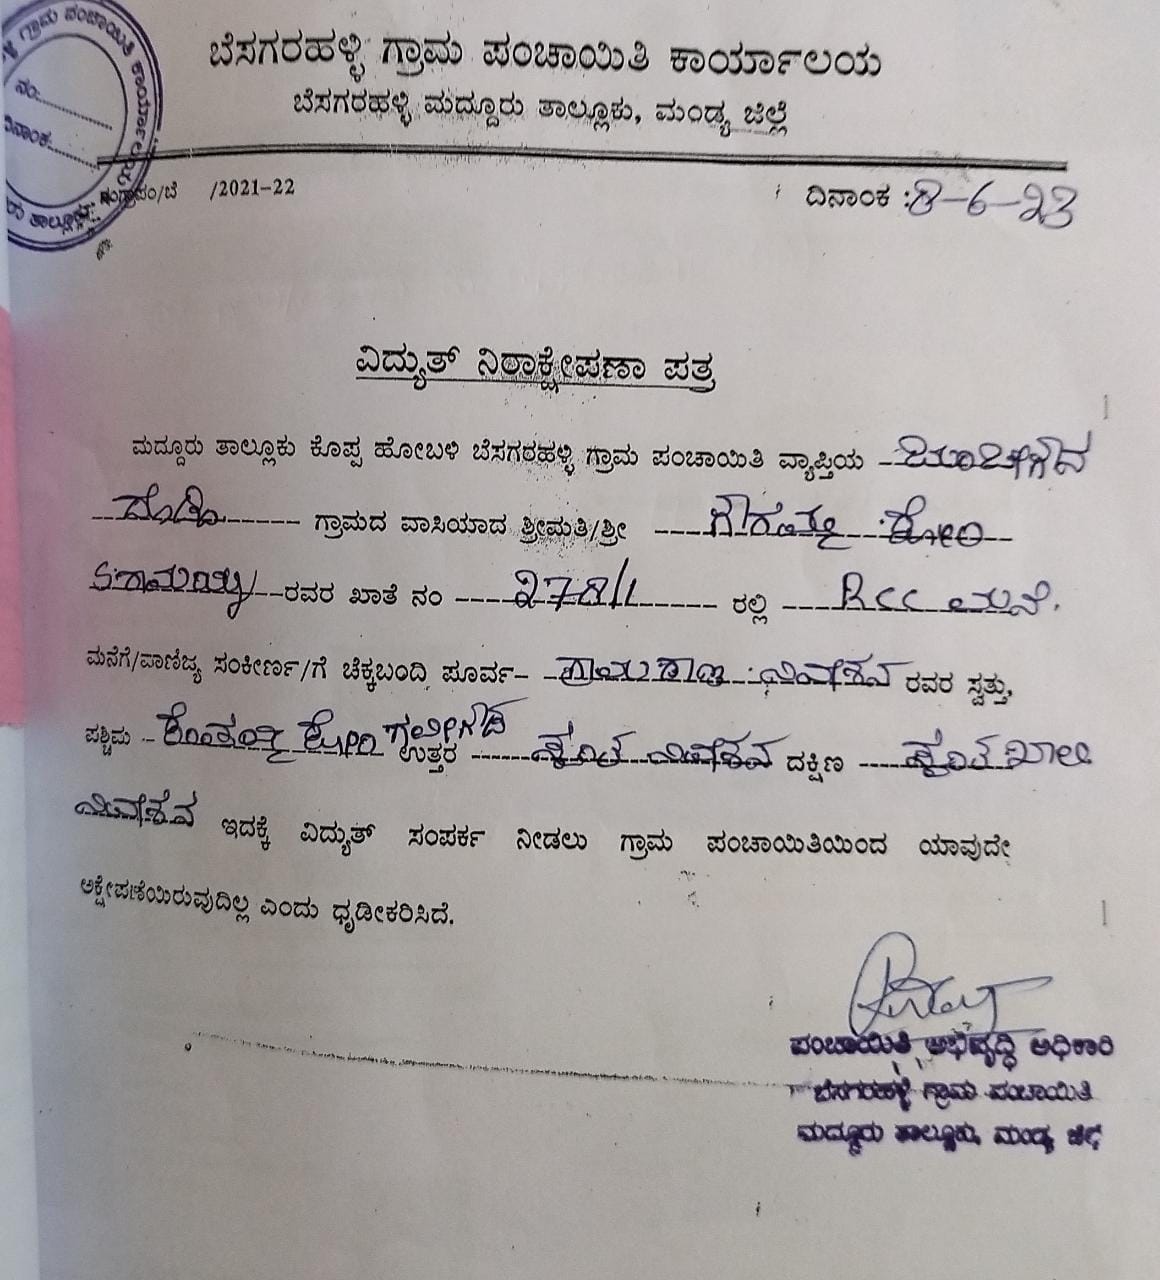 ಗ್ರಾಮ ಪಂಚಾಯಿತಿ ಕಾರ್ಯಾಲಯ
ನಂ:
ದಿನಾಂಕ:
ಬೆಸಗರಹಳ್ಳಿ ಗ್ರಾಮ ಪಂಚಾಯಿತಿ ಕಾರ್ಯಾಲಯ
ಬೆಸಗರಹಳ್ಳಿ ಮದ್ದೂರು ತಾಲ್ಲೂಕು, ಮಂಡ್ಯ ಜಿಲ್ಲೆ
/2021-22 ದಿನಾಂಕ :8-6-23
ವಿದ್ಯುತ್ ನಿರಾಕ್ಷೇಪಣಾ ಪತ್ರ
ಮದ್ದೂರು ತಾಲ್ಲೂಕು ಕೊಪ್ಪ ಹೋಬಳಿ ಬೆಸಗರಹಳ್ಳಿ ಗ್ರಾಮ ಪಂಚಾಯಿತಿ ವ್ಯಾಪ್ತಿಯ
ದೊಡ್ಡಿ ಗ್ರಾಮದ ವಾಸಿಯಾದ ಶ್ರೀಮತಿ/ಶ್ರೀ ಗೌರಮ್ಮ ಕೋಂ
ರಾಮಯ್ಯ ರವರ ಖಾತೆ ನಂ 278/1 ರಲ್ಲಿ RCC ಮನೆ.
ಮನೆಗೆ/ವಾಣಿಜ್ಯ ಸಂಕೀರ್ಣ/ಗೆ ಚೆಕ್ಕಬಂದಿ ಪೂರ್ವ- ನಿವೇಶನ ರವರ ಸ್ವತ್ತು,
ಪಶ್ಚಿಮ ಕೆಂಪಮ್ಮ ಕೋಂ ಉತ್ತರ ಸ್ವಂತ ನಿವೇಶನ ದಕ್ಷಿಣ ಸ್ವಂತ ಖಾಲಿ
ನಿವೇಶನ ಇದಕ್ಕೆ ವಿದ್ಯುತ್ ಸಂಪರ್ಕ ನೀಡಲು ಗ್ರಾಮ ಪಂಚಾಯಿತಿಯಿಂದ ಯಾವುದೇ
ಅಕ್ಷೇಪಣೆಯಿರುವುದಿಲ್ಲ ಎಂದು ಧೃಡೀಕರಿಸಿದೆ.
ಪಂಚಾಯಿತಿ ಅಭಿವೃದ್ಧಿ ಅಧಿಕಾರಿ
ಬೆಸಗರಹಳ್ಳಿ ಗ್ರಾಮ ಪಂಚಾಯಿತಿ
ಮದ್ದೂರು ತಾಲ್ಲೂಕು, ಮಂಡ್ಯ ಜಿಲ್ಲೆ